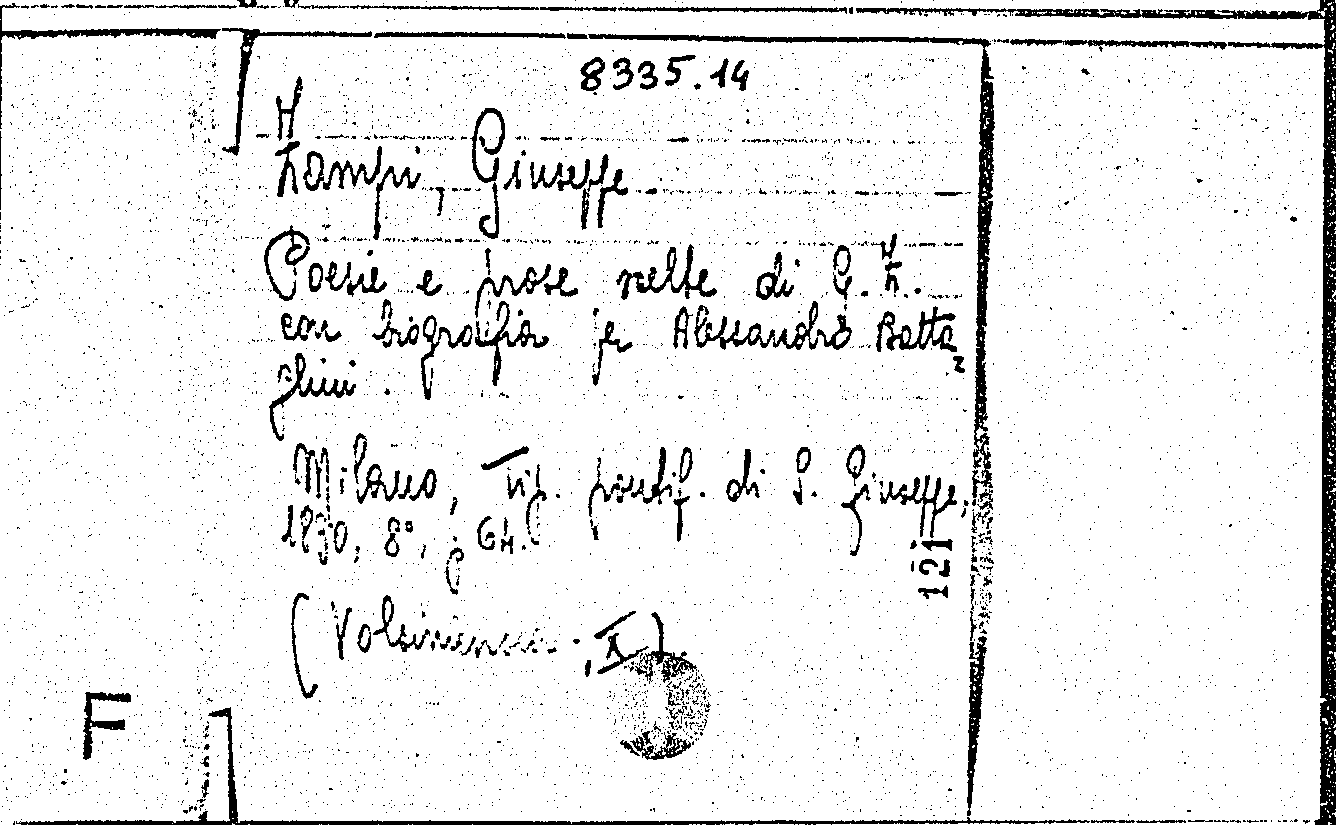 8335.14
Zampi, Giuseppe.
Poesie e prose scelte di G. Z.
con biografia per Alessandro Batta
glini.
Milano, Tip. pontif. di S. Giuseppe,
8°, p 64.
(Volsiniensia, X)
121
F